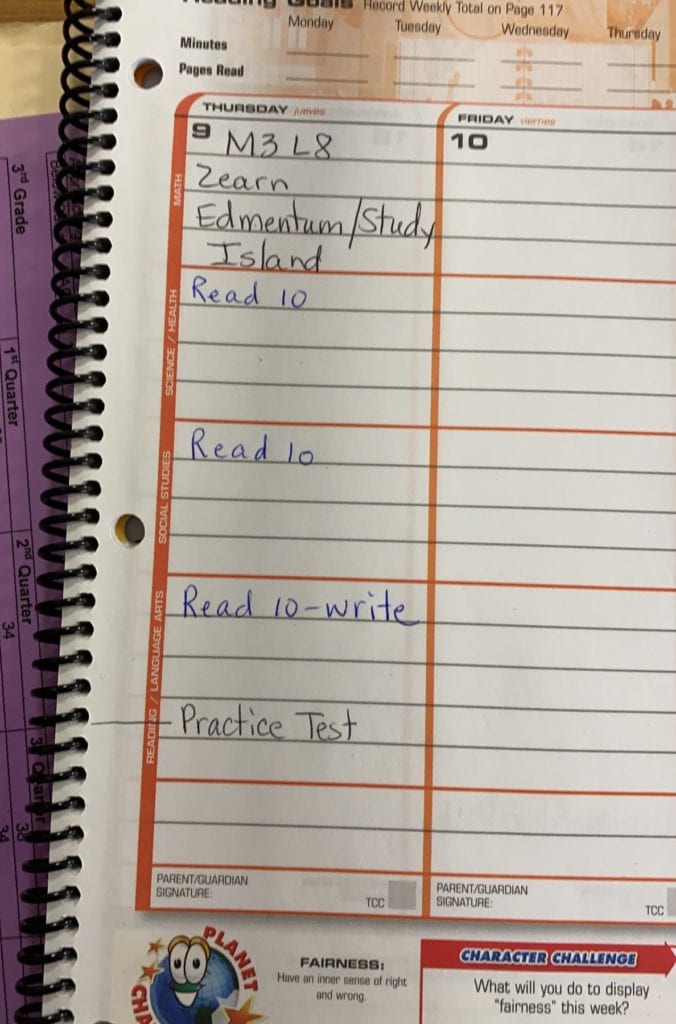 Reading Goals Record Weekly Total on Page 117
Monday Tuesday Wednesday Thursday
Minutes
Pages Read
THURSDAY jueves
9 M3 L8
Zearn
Edmentum/Study
Island
MATH
Read 10
SCIENCE / HEALTH
Read 10
SOCIAL STUDIES
Read 10-write
Practice Test
READING / LANGUAGE ARTS
PARENT/GUARDIAN
SIGNATURE:
TCC
FRIDAY viernes
10
PARENT/GUARDIAN
SIGNATURE:
TCC
PLANET
CHA
FAIRNESS:
Have an inner sense of right
and wrong.
CHARACTER CHALLENGE
What will you do to display
"fairness" this week?
3rd Grade
1st Quarter
2nd Quarter
34
38
34